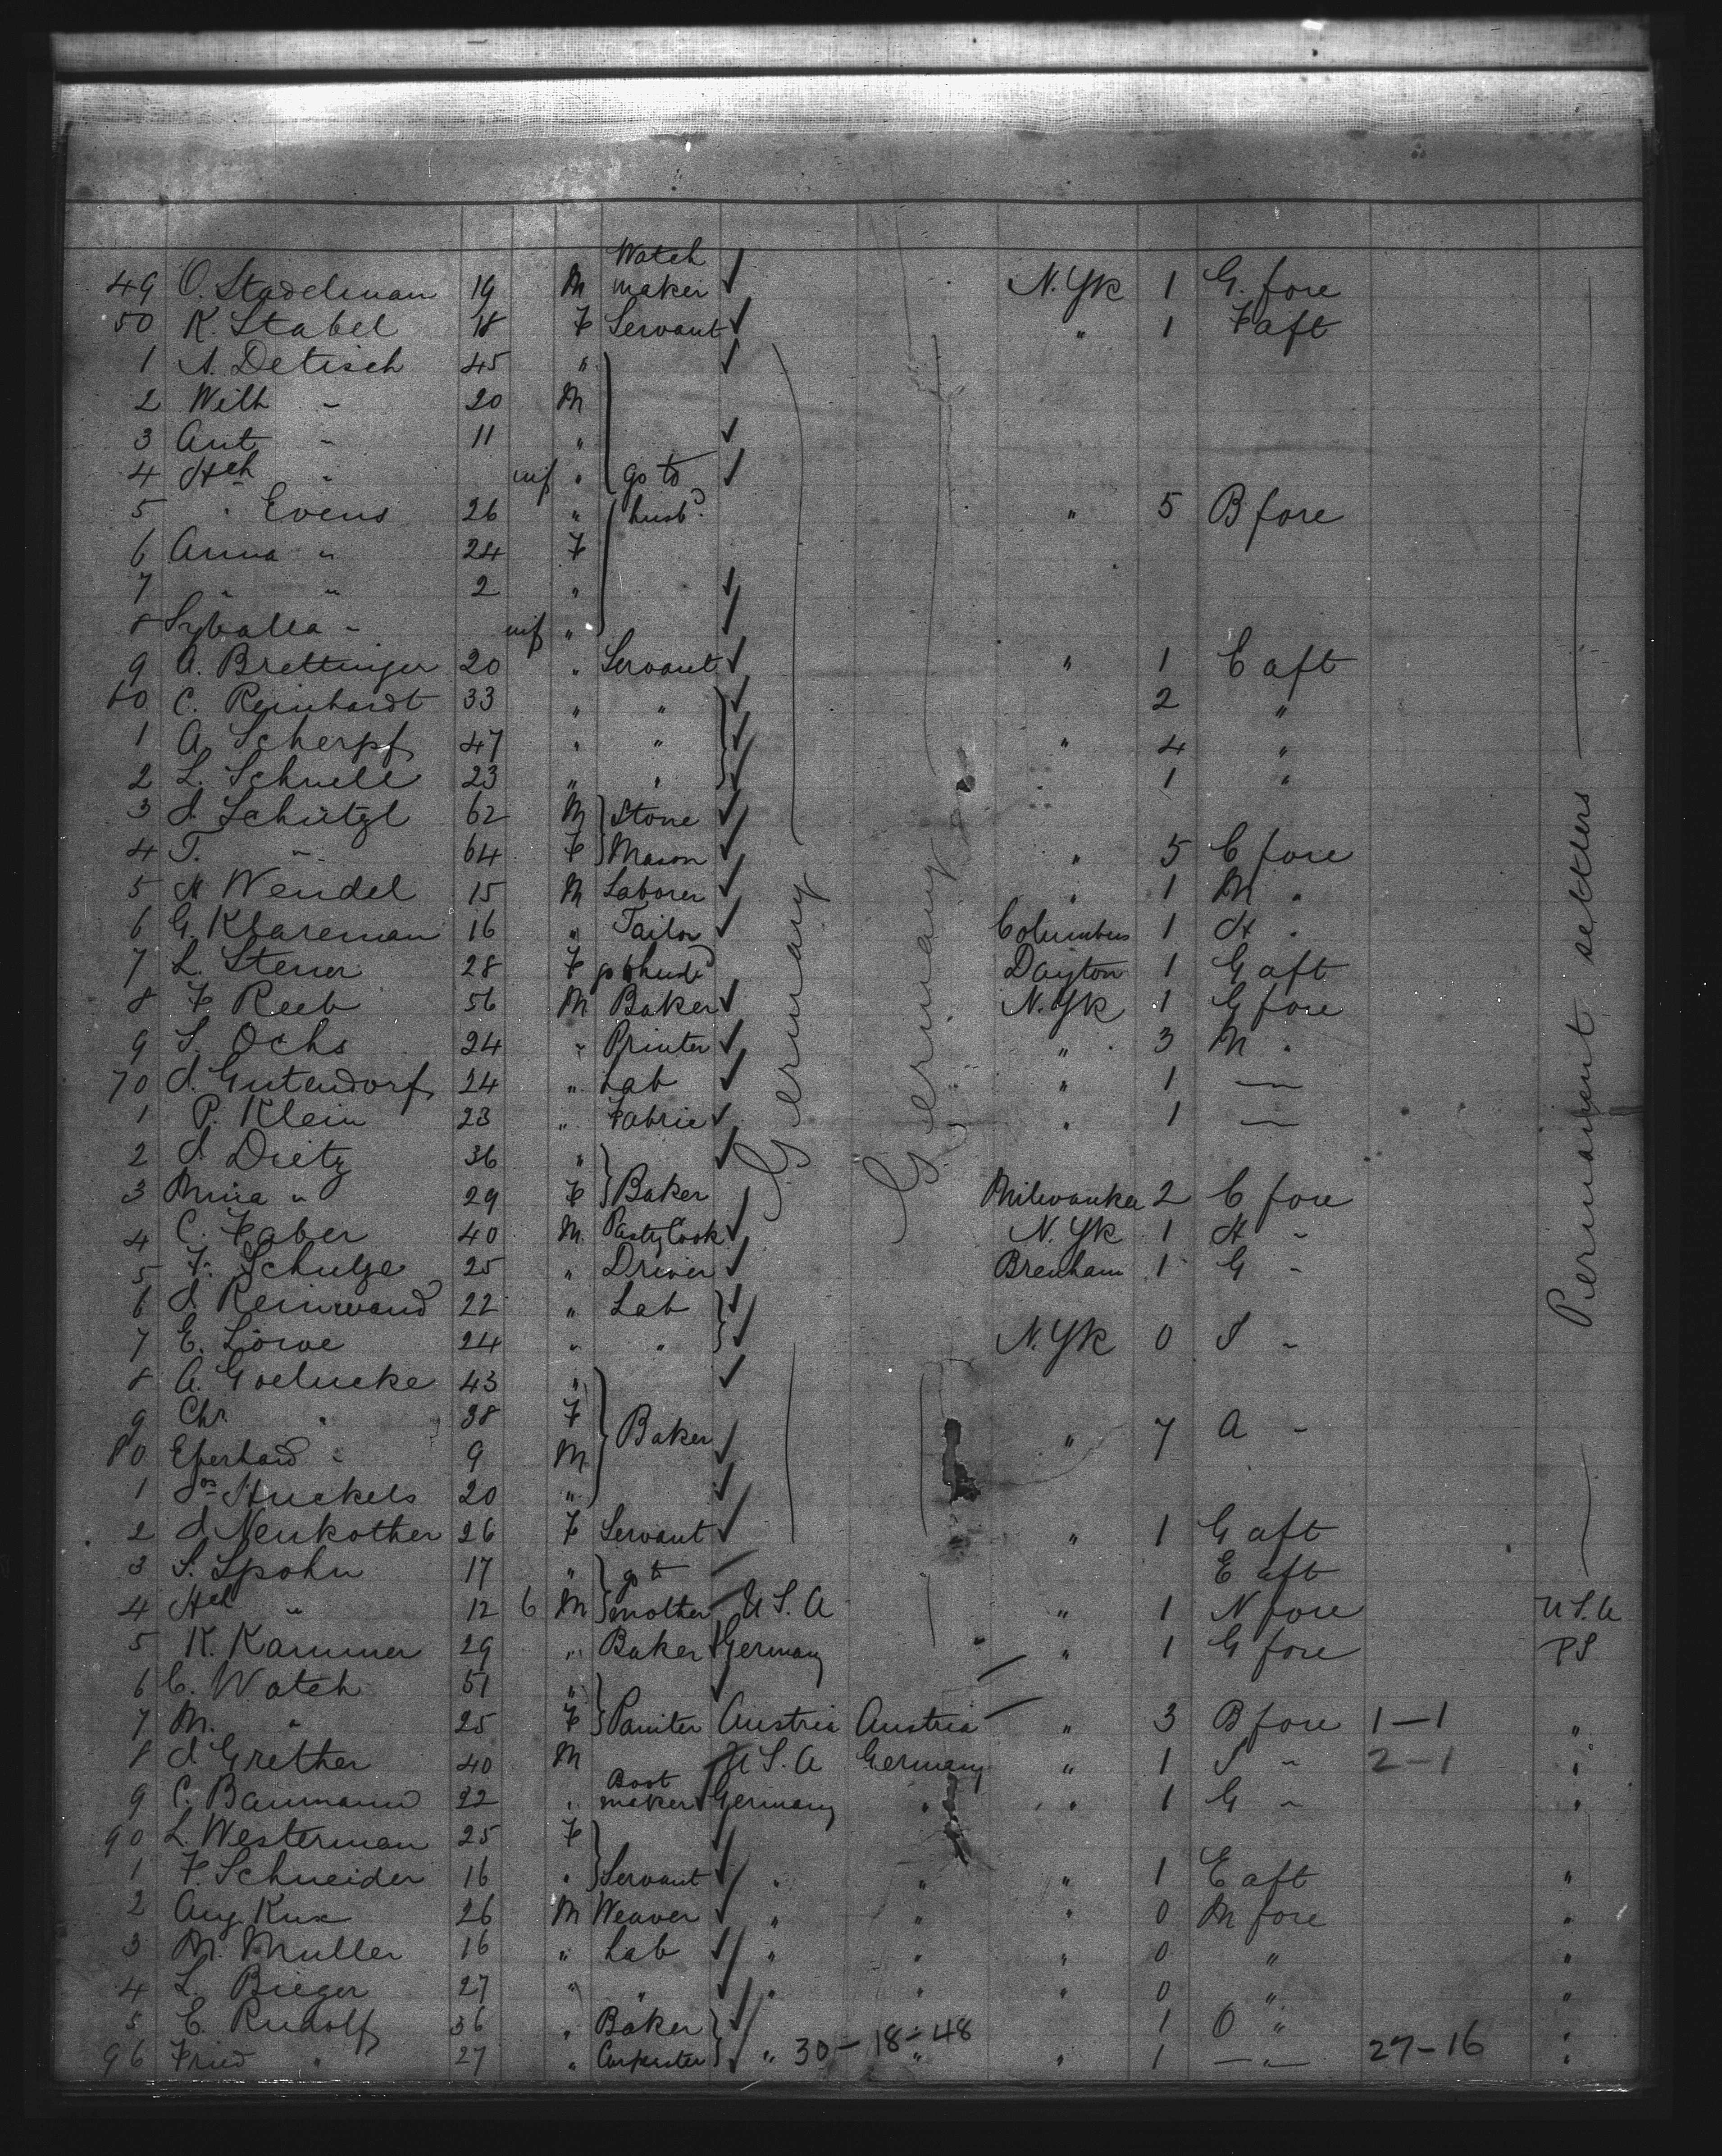 49 O. Stadelman 19 M Watch maker ✓ N.Yk 1 G. fore
50 K. Stabel 18 F Servant ✓ " 1 F aft
1 A. Detisch 45 " ✓
2 Wilh " 20 M
3 Ant " 11 " ✓
4 Hch " inf " go to ✓
5 " Evens 26 " husbd. " 5 B fore
6 Anna " 24 F
7 " " 2 " ✓
8 Syballa " inf " ✓
9 A. Brettinger 20 " Servant ✓ " 1 E aft
60 C. Reinhardt 33 " " ✓ 2 "
1 A. Scherpf 47 " " ✓ " 4 "
2 L. Schnell 23 " " ✓ 1 "
3 J. Schützl 62 M Stone ✓
4 T. " 64 F Mason ✓ " 5 C fore
5 H Wendel 15 M Laborer ✓ " 1 M "
6 G. Klareman 16 " Tailor ✓ Columbus 1 H "
7 L. Steuer 28 F Dayton 1 G aft
8 F Reeb 56 M Baker ✓ N.Yk 1 G fore
9 S. Ochs 24 " Printer ✓ " 3 M "
70 J. Gutendorf 24 " Lab ✓ " 1 —
1 P. Klein 23 " Fabric ✓ " 1 —
2 J. Dietz 36 " ✓
3 Mina " 29 F Baker Milwaukee 2 C fore
4 C. Faber 40 M. Pastry Cook ✓ N.Yk 1 H "
5 F. Schulze 25 " Driver ✓ Brenham 1 G "
6 J. Reinwand 22 " Lab ✓
7 E. Löwe 24 " " ✓ N.Yk 0 S "
8 A. Goelucke 43 " ✓
9 Chr " 38 F
80 Eberhard " 9 M Baker ✓ " 7 A "
1 Jos Huckels 20 " ✓
2 J Neukother 26 F Servant ✓ " 1 G aft
3 S. Spohn 17 " go to E aft
4 Hch " 12 6 M mother U S. A " 1 N fore U S. A
5 K. Kammer 29 " Baker Germany " 1 G fore P S
6 C. Watch 51 " ✓
7 M. " 25 F Painter Austria Austria " 3 B fore 1—1 "
8 J Grether 40 M U S. A Germany " 1 S " 2—1 "
9 C. Baumann 22 " Boot maker Germany " " 1 G " "
90 L. Westerman 25 F ✓
1 F. Schneider 16 " Servant ✓ " " " 1 E aft "
2 Aug Kux 26 M Weaver ✓ " " " 0 M fore "
3 M. Muller 16 " Lab ✓ " " " 0 " "
4 L. Bieger 27 " " ✓ " " " 0 " "
5 E. Rudolf 36 " Baker ✓ 1 O "
96 Fried " 27 " Carpenter ✓ " 30—18—48 " " 1 — " — 27—16 "
Germany
Germany
Permanent settlers